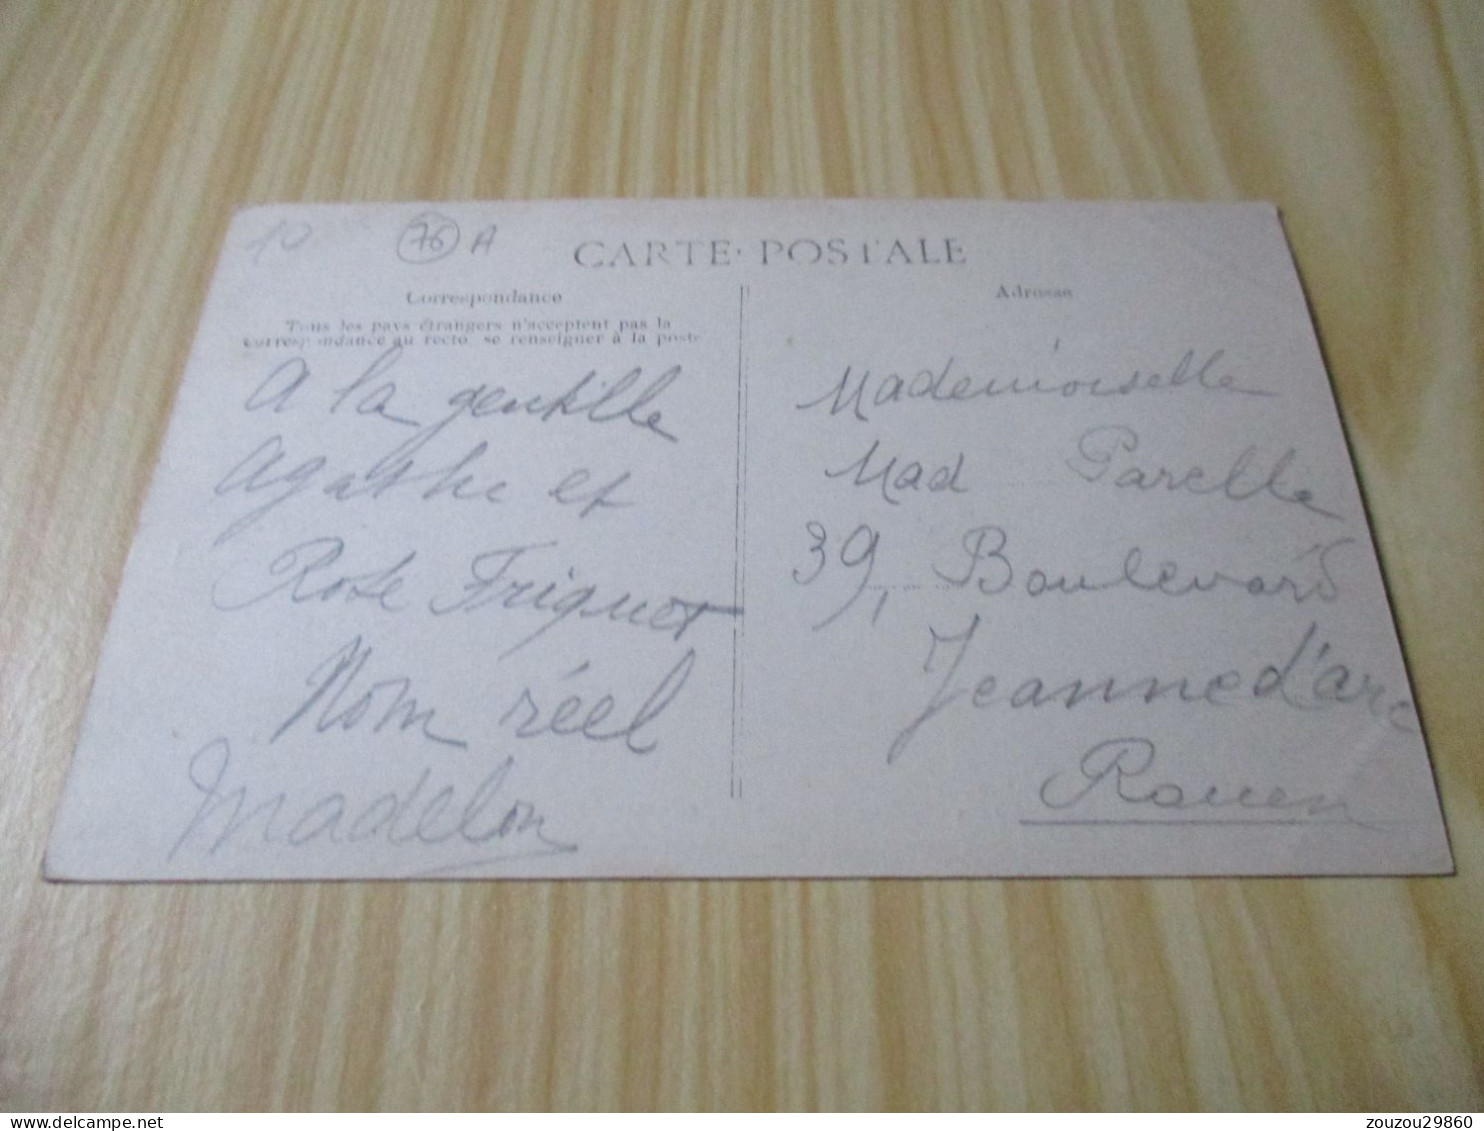 10 76 A
CARTE POSTALE
Correspondance
Tous les pays étrangers n'acceptent pas la
correspondance au recto, se renseigner à la poste
A la gentille
Agathe et
Rose Friquet
Nom réel
Madelon
Adresse
Mademoiselle
Mad Parelle
39, Boulevard
Jeanne d'arc
Rouen
zouzou29860